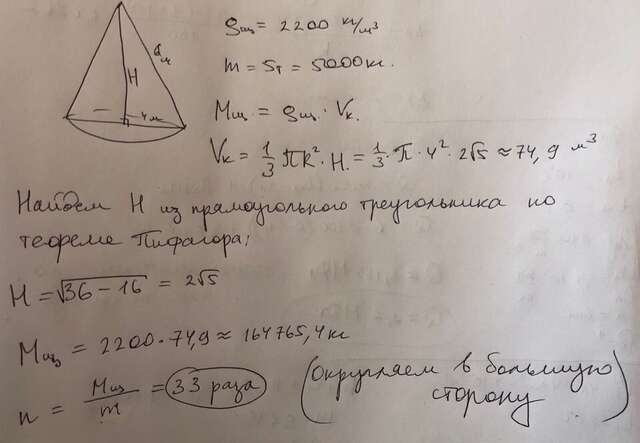 H
4м
ρщ = 2200 кг/м³
m = 5т = 5000кг.
Mщ = ρщ · Vк.
Vк = 1/3 πR² · H = 1/3 · π · 4² · 2√5 ≈ 74,9 м³
Найдем H из прямоугольного треугольника по
теореме Пифагора:
H = √36 – 16 = 2√5
Mщ = 2200 · 74,9 ≈ 164765,4 кг
n = Mщ/m = 33 раза
(округляем в большую
сторону)